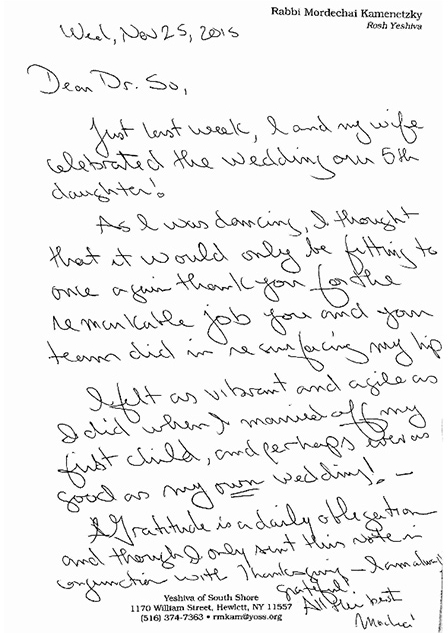 Rabbi Mordechai Kamenetzky
Rosh Yeshiva
Wed, Nov 25, 2015
Dear Dr. So,
Just last week, I and my wife
celebrated the wedding our 5th
daughter!
As I was dancing, I thought
that it would only be fitting to
once again thank you for the
remarkable job you and your
team did in resurfacing my hip
I felt as vibrant and agile as
I did when I married off my
first child, and perhaps even as
good as my own wedding! -
Gratitude is a daily obligation
and though I only sent this note in
conjunction with Thanksgiving - I am always
grateful!
All the best
Yeshiva of South Shore
1170 William Street, Hewlett, NY 11557
(516) 374-7363 • rmkam@yoss.org